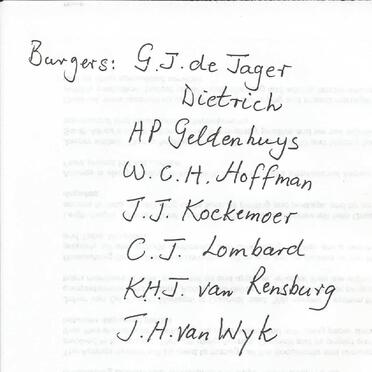 Burgers: G.J. de Jager
Dietrich
HP Geldenhuys
W.C.H. Hoffman
J.J. Kockemoer
C.J. Lombard
K.H.J. van Rensburg
J.H. van Wyk